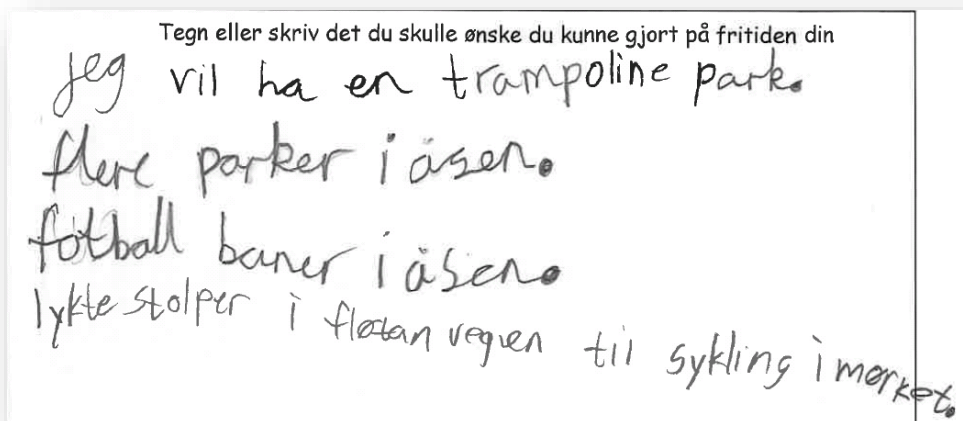 Tegn eller skriv det du skulle ønske du kunne gjort på fritiden din
jeg vil ha en trampoline park.
flere parker i åsen.
fotball baner i åsen.
lykte stolper i fløtan vegien til sykling i mørket.